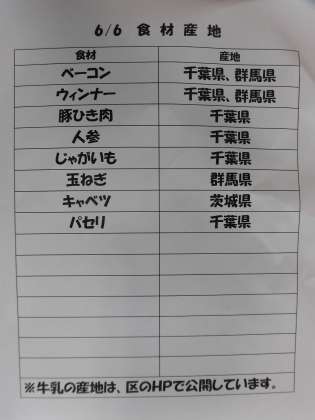 6/6 食材産地
食材 産地
ベーコン 千葉県、群馬県
ウィンナー 千葉県、群馬県
豚ひき肉 千葉県
人参 千葉県
じゃがいも 千葉県
玉ねぎ 群馬県
キャベツ 茨城県
パセリ 千葉県
※牛乳の産地は、区のHPで公開しています。